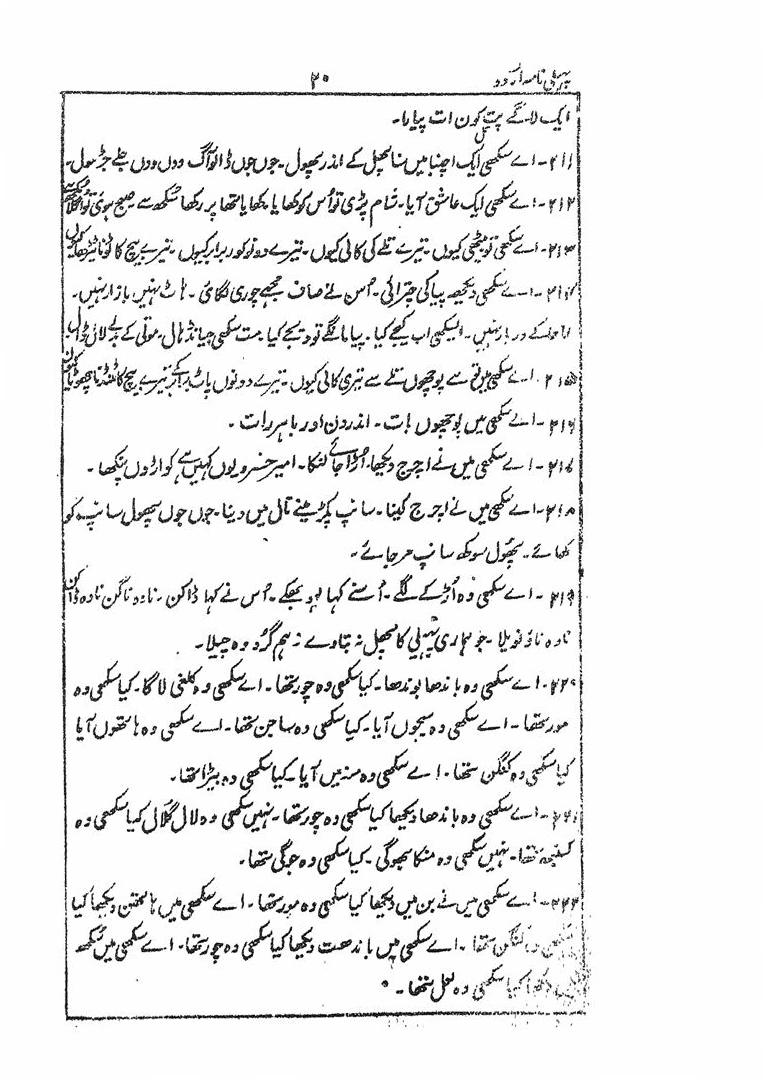 پہیلی نامہ اردو ۲۰
ایک لاگے پت کون ات پیارا۔
۲۱۱۔ اے سکھی ایک اچنبا میں سنا پھل کے اندر پھول۔ جوں جوں ڈالو آگ ووں ووں جلے جڑ مول۔
۲۱۲۔ اے سکھی ایک عاشق آیا۔ شام پڑی تو اُس کو کھایا۔ کھایا تھا پر رکھا سُکھ سے صبح ہوئی تو
۲۱۳۔ اے سکھی تو بیٹھی کیوں۔ تیرے تلے کی کالی کیوں۔ تیرے دونو کور برابر کیوں۔ تیرے بیچ کا ٹوٹا ٹیڑھا کیوں
۲۱۴۔ اے سکھی دیکھ پیا کی چترائی۔ اُس نے صاف مجھے چوری لگائی۔ ہاٹ نہیں بازار نہیں۔
راجہ کے دربار نہیں۔ اے سکھی اب کیجے کیا۔ پیا مانگے تو دیجے کیا۔ مت سکھی جیا نڈھال۔ موتی کے بدلے لال ڈال
۲۱۵۔ اے سکھی میں تجھ سے پوچھوں تلے سے تیری کالی کیوں۔ تیرے دونوں پاٹ برابر تیرے بیچ کا ٹنڈنا چھوٹا کیوں
۲۱۶۔ اے سکھی میں پوچھوں بات۔ اندر دن اور باہر رات۔
۲۱۷۔ اے سکھی میں نے اچرج دیکھا، اُڑا جائے لنکا۔ امیر خسرو یوں کہیں ہے کواڑوں پنکھا۔
۲۱۸۔ اے سکھی میں نے اچرج کینا۔ سانپ پکڑ مینے تال میں دینا۔ جوں جوں پھول سانپ کو
کھائے۔ پھول سوکھ سانپ مر جائے۔
۲۱۹۔ اے سکھی وہ اُڑ کے لگے۔ اُسنے کہا لہو بھکے۔ اُس نے کہا ڈاکن۔ نا وہ ناگن نا وہ ڈاکن
نا وہ ناؤ نویلا۔ جو ہماری پہیلی کا پھل نہ بتاوے نہ ہم گرُو وہ چیلا۔
۲۲۰۔ اے سکھی وہ باندھا بوندھا۔ کیا سکھی وہ چور تھا۔ اے سکھی وہ کلغی لاگا۔ کیا سکھی وہ
مور تھا۔ اے سکھی وہ سیجوں آیا۔ کیا سکھی وہ ساجن تھا۔ اے سکھی وہ ہاتھوں آیا
کیا سکھی وہ کنگن تھا۔ اے سکھی وہ منہ میں آیا۔ کیا سکھی وہ بیڑا تھا۔
۲۲۱۔ اے سکھی وہ باندھا دیکھا کیا سکھی وہ چور تھا۔ نہیں سکھی وہ لال گلال کیا سکھی وہ
تھا۔ نہیں سکھی وہ منکا بھوگی۔ کیا سکھی وہ جوگی تھا۔
۲۲۲۔ اے سکھی میں نے بن میں دیکھا کیا سکھی وہ مور تھا۔ اے سکھی میں ہاتھن دیکھا کیا
سکھی وہ کنگن تھا۔ اے سکھی میں باندھت دیکھا کیا سکھی وہ چور تھا۔ اے سکھی میں مُکھ
میں دیکھا کیا سکھی وہ لعل تھا۔